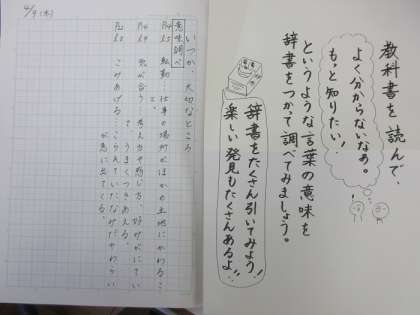 教科書を読んで、
よく分からないなぁ。
もっと知りたい!
というような言葉の意味を
辞書をつかって調べてみましょう。
辞書をたくさん引いてみよう!
楽しい発見もたくさんあるよ!!
4/9(木)
いつか、大切なところ
意味調べ
転勤…仕事の場所がほかの土地にかわるこ
と。
気が合う 考え方や感じ方、好みがにてい
て、うまくつきあえる。
こみあげる…こらえていたなみだやわらい
が急に出てくる。